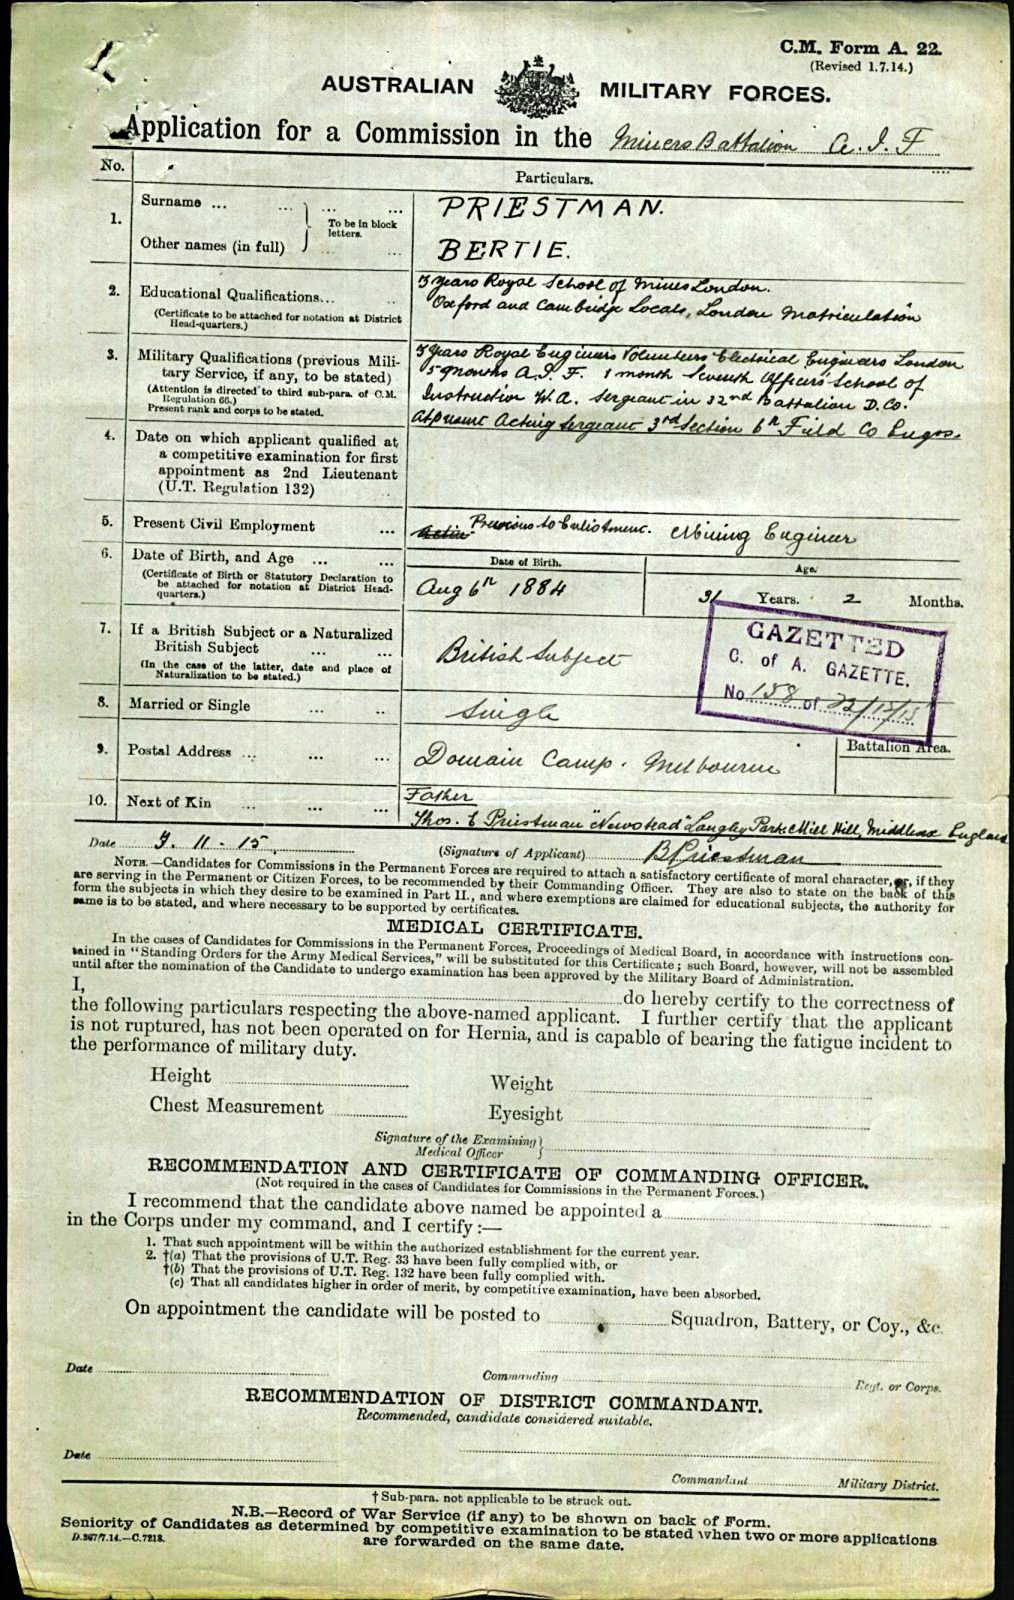 C.M. Form A. 22.
(Revised 1.7.14.)
AUSTRALIAN MILITARY FORCES.
Application for a Commission in the Miners Battalion A.I.F
No. Particulars.
1. Surname ... ... ... ... PRIESTMAN.
To be in block letters.
Other names (in full) ... ... BERTIE.
2. Educational Qualifications... ... 3 years Royal School of Mines London.
(Certificate to be attached for notation at District Head-quarters.) Oxford and Cambridge Locals, London Matriculation
3. Military Qualifications (previous Military Service, if any, to be stated) 3 years Royal Engineers Volunteers Electrical Engineers London
5 months A.I.F. 1 month Seventh Officers School of
(Attention is directed to third sub-para. of C.M. Regulation 66.) Instruction W.A. Sergeant in 32nd Battalion D. Co.
Present rank and corps to be stated. At present Acting Sergeant 3rd Section 6th Field Co Engrs.
4. Date on which applicant qualified at
a competitive examination for first
appointment as 2nd Lieutenant
(U.T. Regulation 132)
5. Present Civil Employment ... Previous to Enlistment. Mining Engineer
6. Date of Birth, and Age ... ... Date of Birth. Age.
(Certificate of Birth or Statutory Declaration to be attached for notation at District Head-quarters.) Aug 6th 1884 31 Years. 2 Months.
7. If a British Subject or a Naturalized
British Subject ... ... British Subject
(In the case of the latter, date and place of Naturalization to be stated.)
GAZETTED
C. of A. GAZETTE.
No. 158 of 22/12/15
8. Married or Single ... .. Single
9. Postal Address ... ... ... Domain Camp. Melbourne
Battalion Area.
10. Next of Kin ... ... ... Father
Thos. E Priestman "Newstead" Langley Park Mill Hill, Middlesex England
Date 9.11.15. (Signature of Applicant) B Priestman
NOTE.—Candidates for Commissions in the Permanent Forces are required to attach a satisfactory certificate of moral character, or, if they
are serving in the Permanent or Citizen Forces, to be recommended by their Commanding Officer. They are also to state on the back of this
form the subjects in which they desire to be examined in Part II., and where exemptions are claimed for educational subjects, the authority for
same is to be stated, and where necessary to be supported by certificates.
MEDICAL CERTIFICATE.
In the cases of Candidates for Commissions in the Permanent Forces, Proceedings of Medical Board, in accordance with instructions con-
tained in "Standing Orders for the Army Medical Services," will be substituted for this Certificate; such Board, however, will not be assembled
until after the nomination of the Candidate to undergo examination has been approved by the Military Board of Administration.
I, do hereby certify to the correctness of
the following particulars respecting the above-named applicant. I further certify that the applicant
is not ruptured, has not been operated on for Hernia, and is capable of bearing the fatigue incident to
the performance of military duty.
Height Weight
Chest Measurement Eyesight
Signature of the Examining
Medical Officer
RECOMMENDATION AND CERTIFICATE OF COMMANDING OFFICER.
(Not required in the cases of Candidates for Commissions in the Permanent Forces.)
I recommend that the candidate above named be appointed a
in the Corps under my command, and I certify :—
1. That such appointment will be within the authorized establishment for the current year.
2. †(a) That the provisions of U.T. Reg. 33 have been fully complied with, or
†(b) That the provisions of U.T. Reg. 132 have been fully complied with.
(c) That all candidates higher in order of merit, by competitive examination, have been absorbed.
On appointment the candidate will be posted to Squadron, Battery, or Coy., &c.
Date Commanding Regt. or Corps.
RECOMMENDATION OF DISTRICT COMMANDANT.
Recommended, candidate considered suitable.
Date
Commandant Military District.
† Sub-para. not applicable to be struck out.
N.B.—Record of War Service (if any) to be shown on back of Form.
Seniority of Candidates as determined by competitive examination to be stated when two or more applications
are forwarded on the same date.
D.367/7.14.—C.7218.